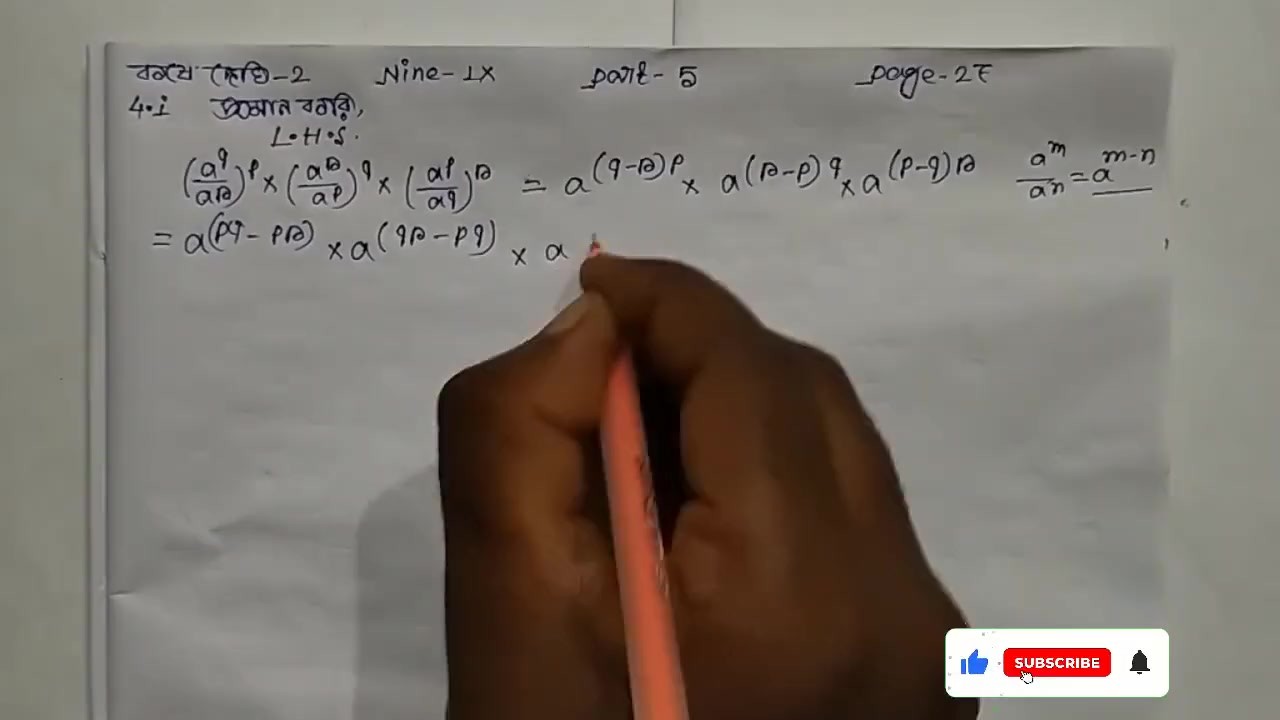 কষে দেখি-2 Nine-IX Part-5 Page-27
4.i প্রমাণ করি,
L.H.S.
(a^q/a^r)^p × (a^r/a^p)^q × (a^p/a^q)^r = a^(q-r)p × a^(r-p)q × a^(p-q)r a^m/a^n = a^m-n
= a^(pq-pr) × a^(qr-pq) × a
SUBSCRIBE